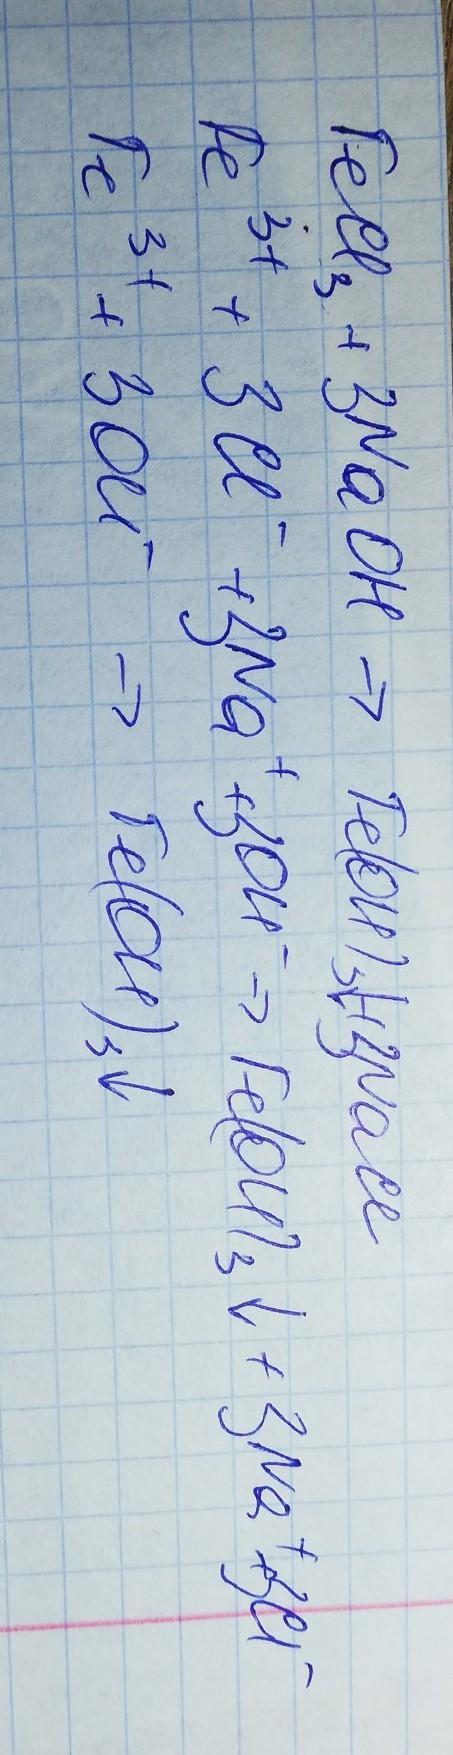 FeCl₃ + 3NaOH → Fe(OH)₃↓+3NaCl
Fe³⁺ + 3Cl⁻ + 3Na⁺ + 3OH⁻ → Fe(OH)₃↓ + 3Na⁺ + 3Cl⁻
Fe³⁺ + 3OH⁻ → Fe(OH)₃↓